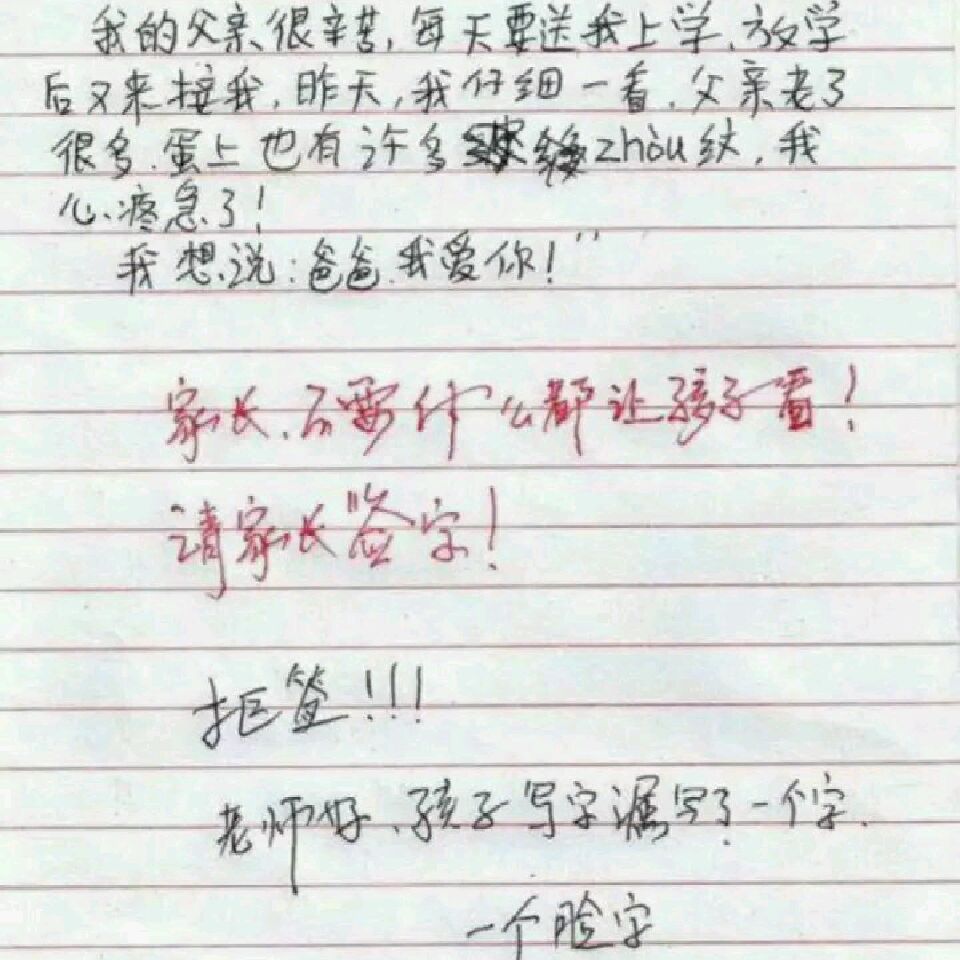 我的父亲很辛苦,每天要送我上学,放学
后又来接我,昨天,我仔细一看,父亲老了
很多.蛋上也有许多zhòu纹,我
心疼急了!
我想说:爸爸.我爱你!"
家长.不要什么都让孩子看!
请家长签字!
拒签!!!
老师好.孩子写字漏写了一个字.
一个脸字